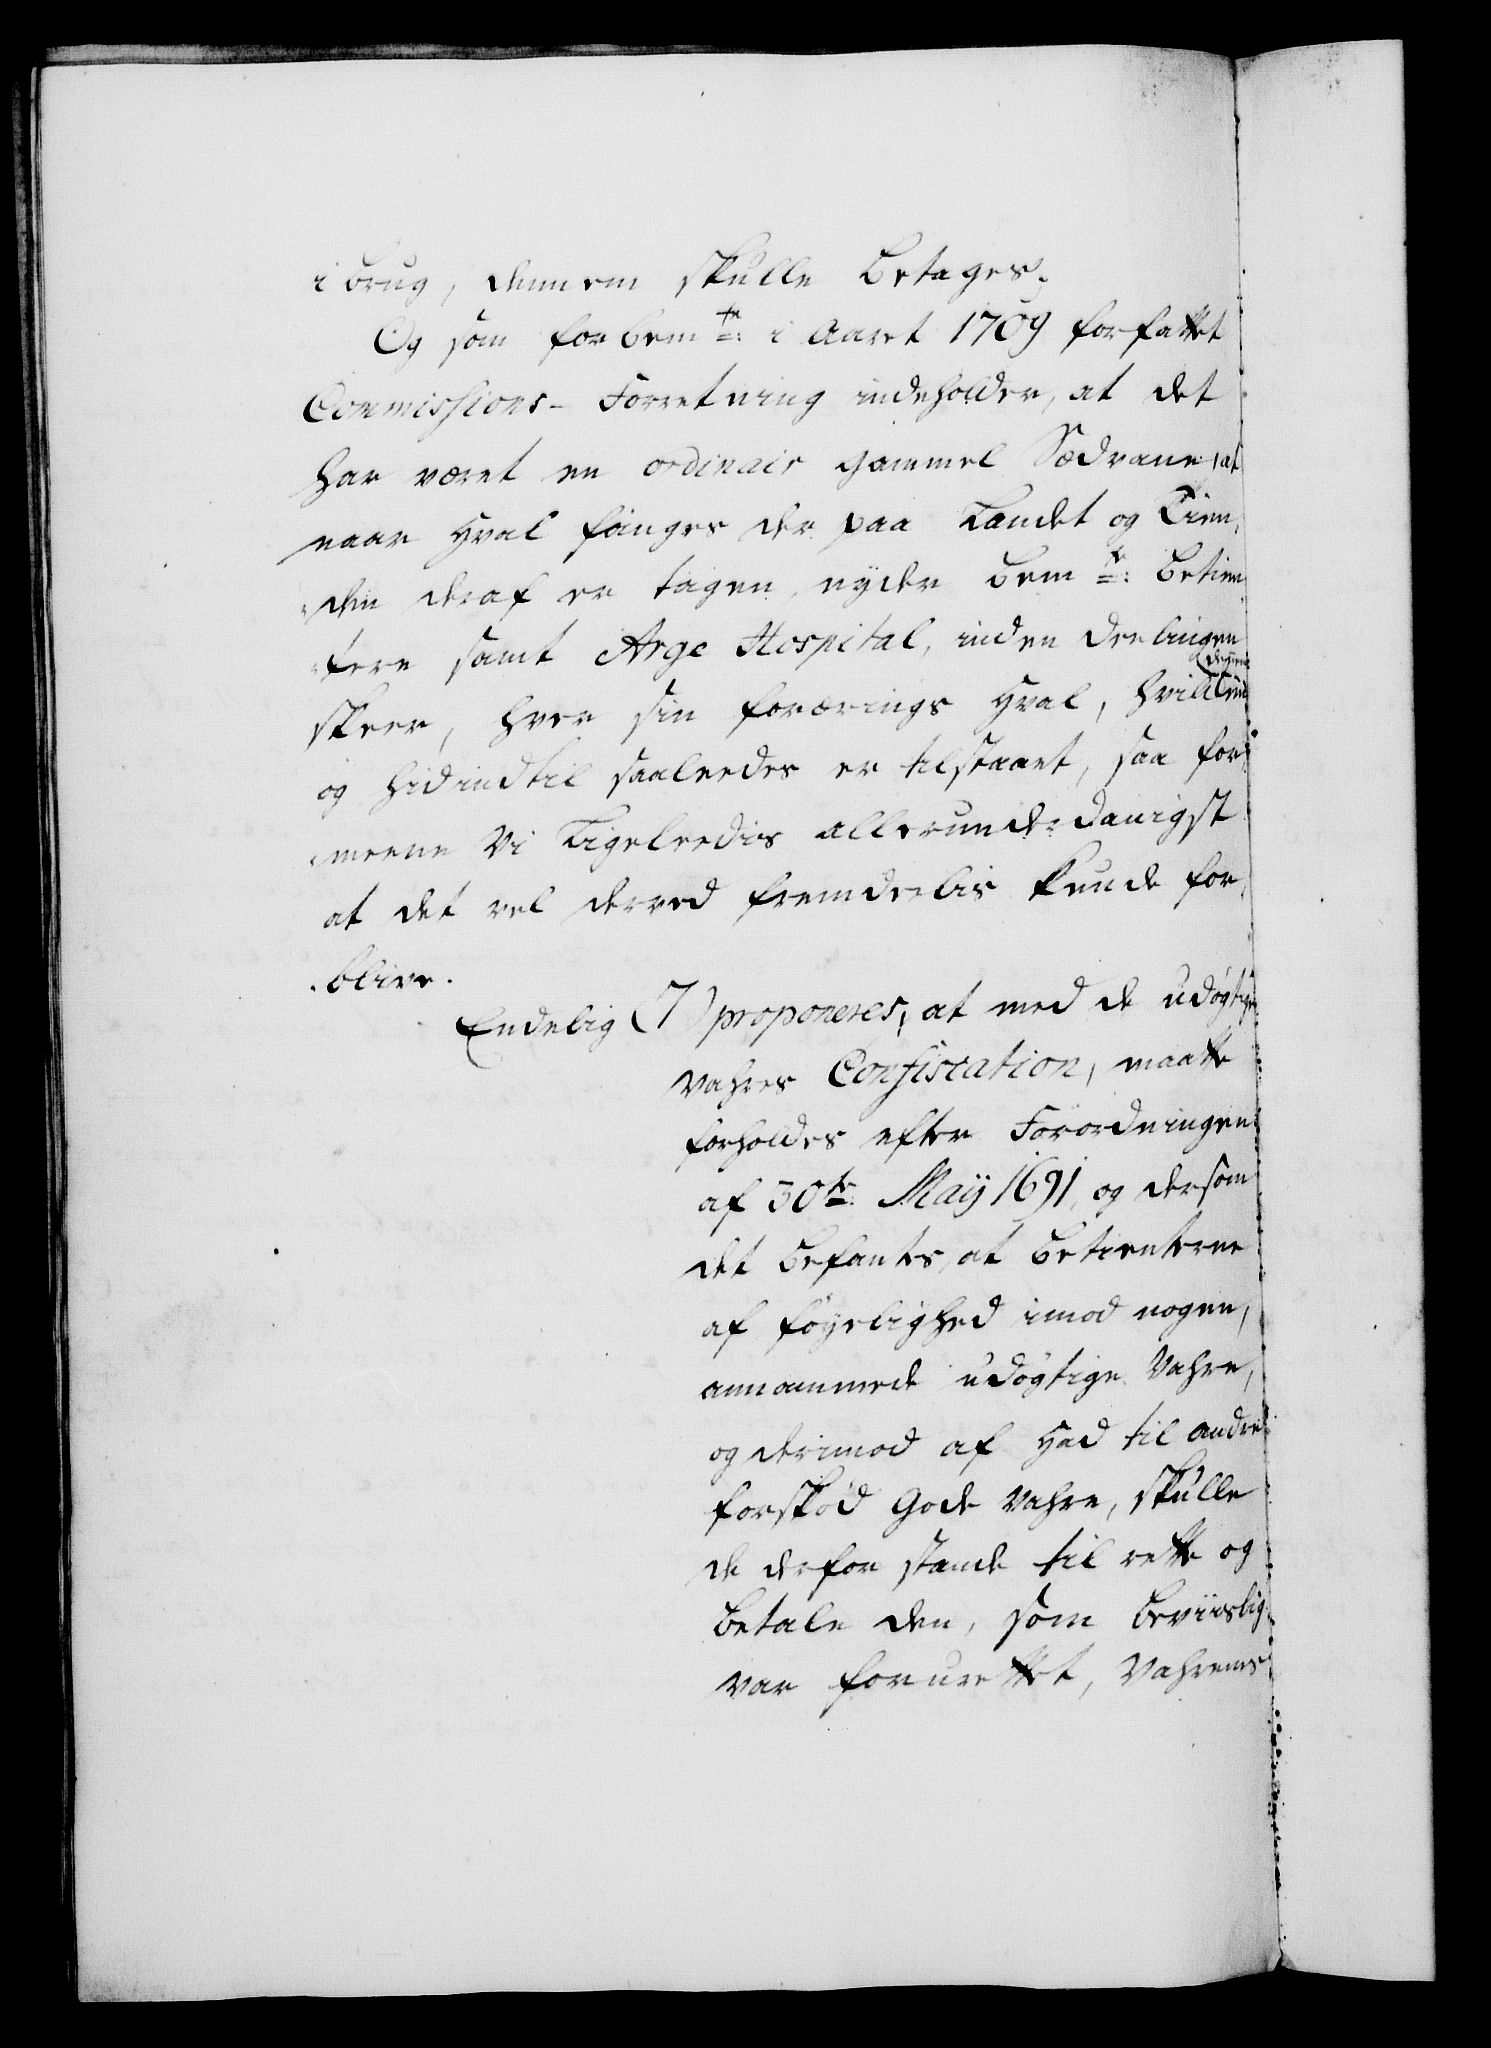 i brug, dennem skulle betages.
Og som forbemte: i Aaret 1709 forfattet
Commissions-Forretning indeholder, at det
har været en ordinair gammel Sædvane, at
naar Hval fanges der paa Landet og Tien-
-den deraf er tagen, nyder bemte: betien-
-tere samt Arge Hospital, inden deelingen
skeer, hver sin forærings Hval, hvilket dennem
og hidindtil saaleedes er tilstaaet, saa for-
-meene Vi Ligeleedis allerunderdanigst
at det vel derved fremdelis kunde for-
-blive.
Endelig (7) proponeres, at med de udøgtige
Vahres Confiscation, maatte
forholdes efter Forordningen
af 30te: Maij 1691, og dersom
det befantes, at betienterne
af føyelighed imod nogen,
annammede udøgtige Vahre,
og derimod af Had til andre
forskød gode Vahre, skulle
de derfor stande til rette og
betale den, som beviislig
var forurettet, Vahrens